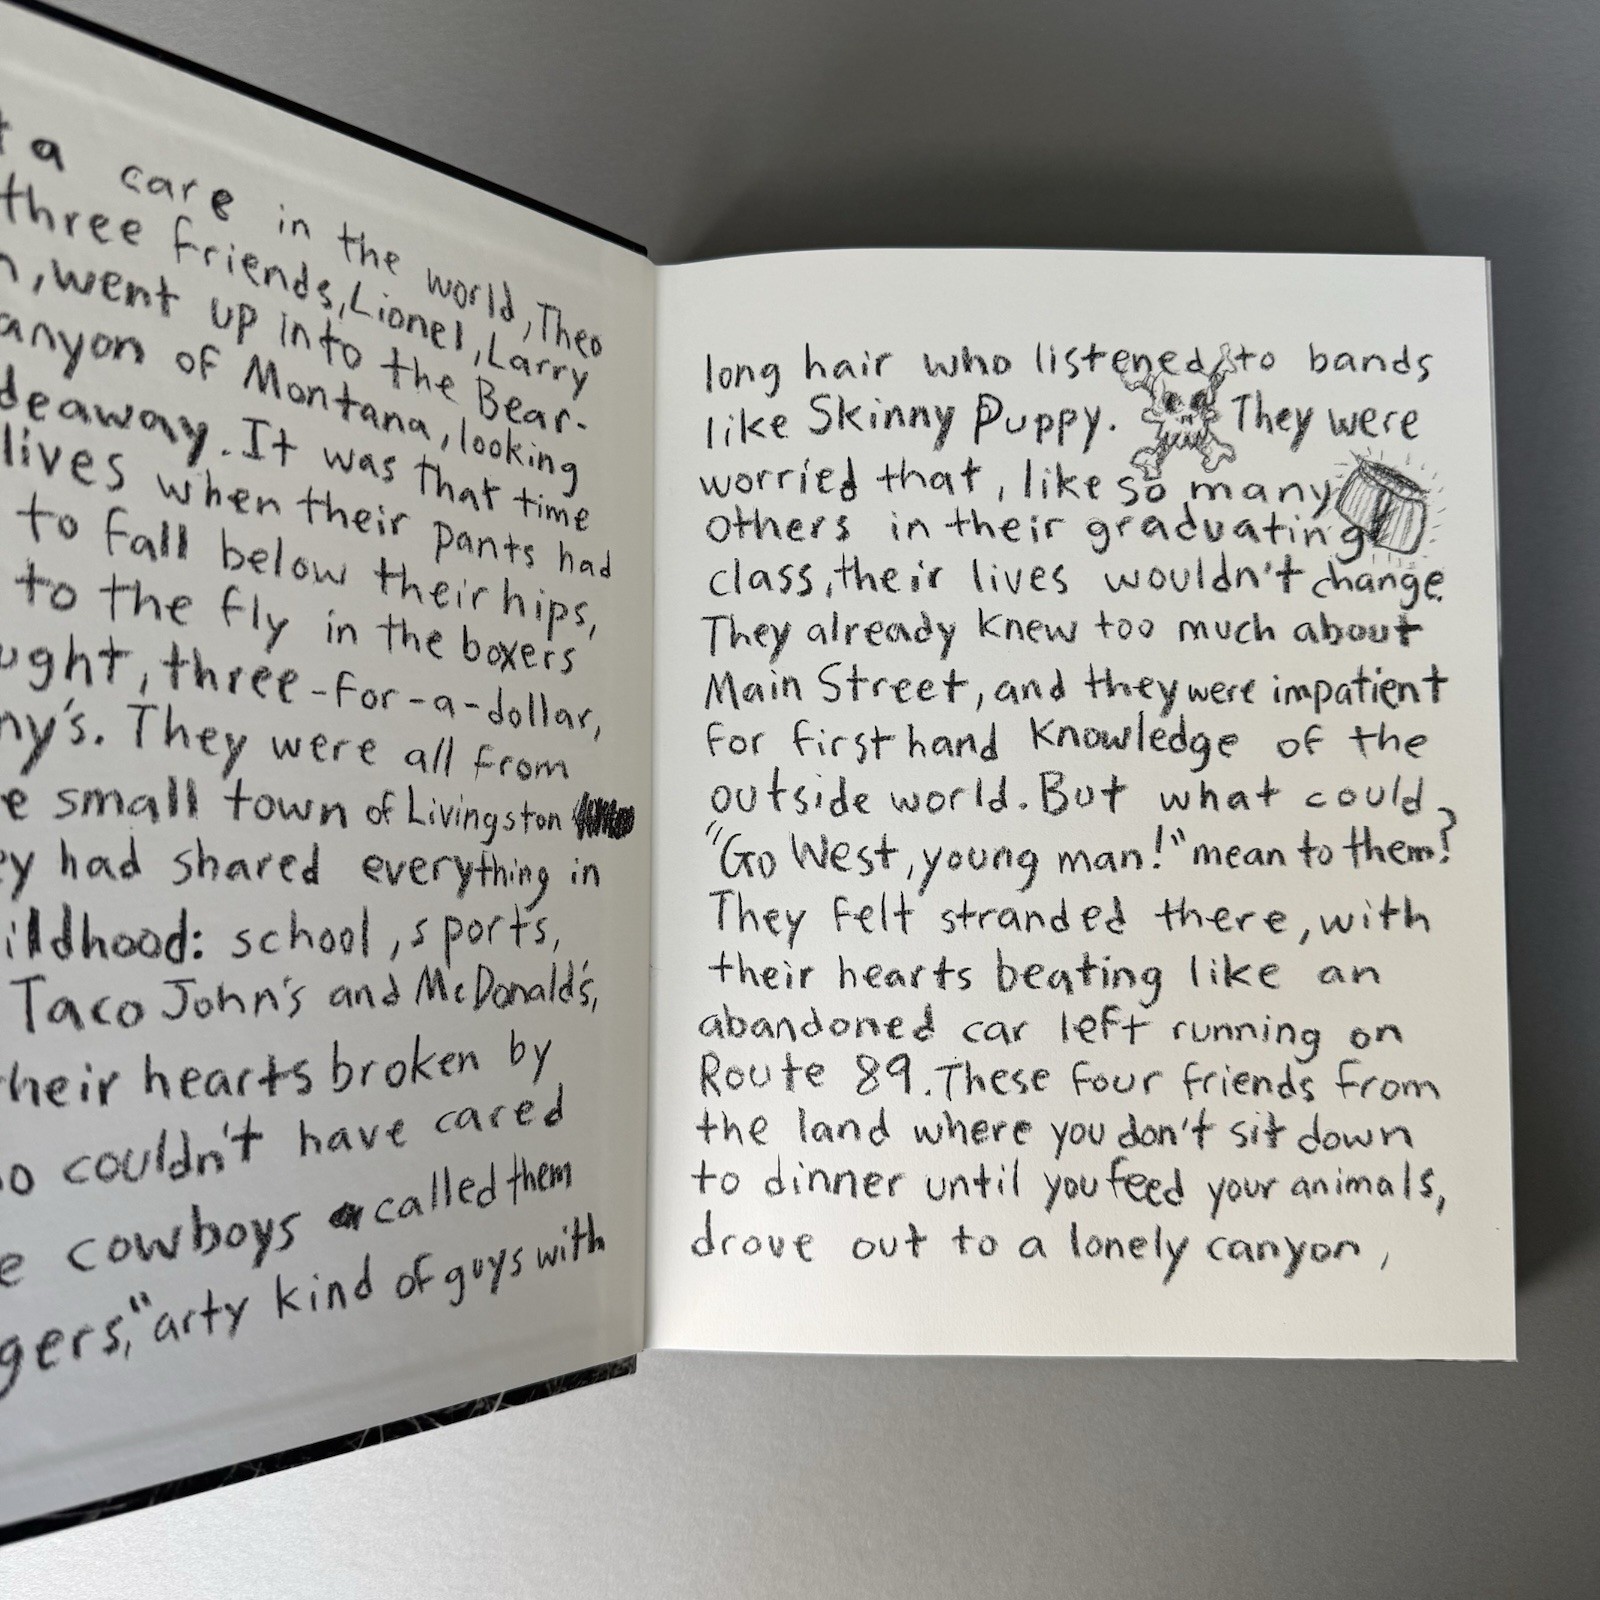 a care in the world, Theo
three friends, Lionel, Larry
, went up into the Bear-
anyon of Montana, looking
deaway. It was that time
lives when their pants had
to fall below their hips,
to the fly in the boxers
ught, three-for-a-dollar,
ny's. They were all from
e small town of Livingston
ey had shared everything in
ildhood: school, sports,
Taco John's and McDonald's,
heir hearts broken by
o couldn't have cared
e cowboys called them
gers," arty kind of guys with
long hair who listened to bands
like Skinny Puppy. They were
worried that, like so many
others in their graduating
class, their lives wouldn't change.
They already knew too much about
Main Street, and they were impatient
for firsthand knowledge of the
outside world. But what could
"Go West, young man!" mean to them?
They felt stranded there, with
their hearts beating like an
abandoned car left running on
Route 89. These four friends from
the land where you don't sit down
to dinner until you feed your animals,
drove out to a lonely canyon,